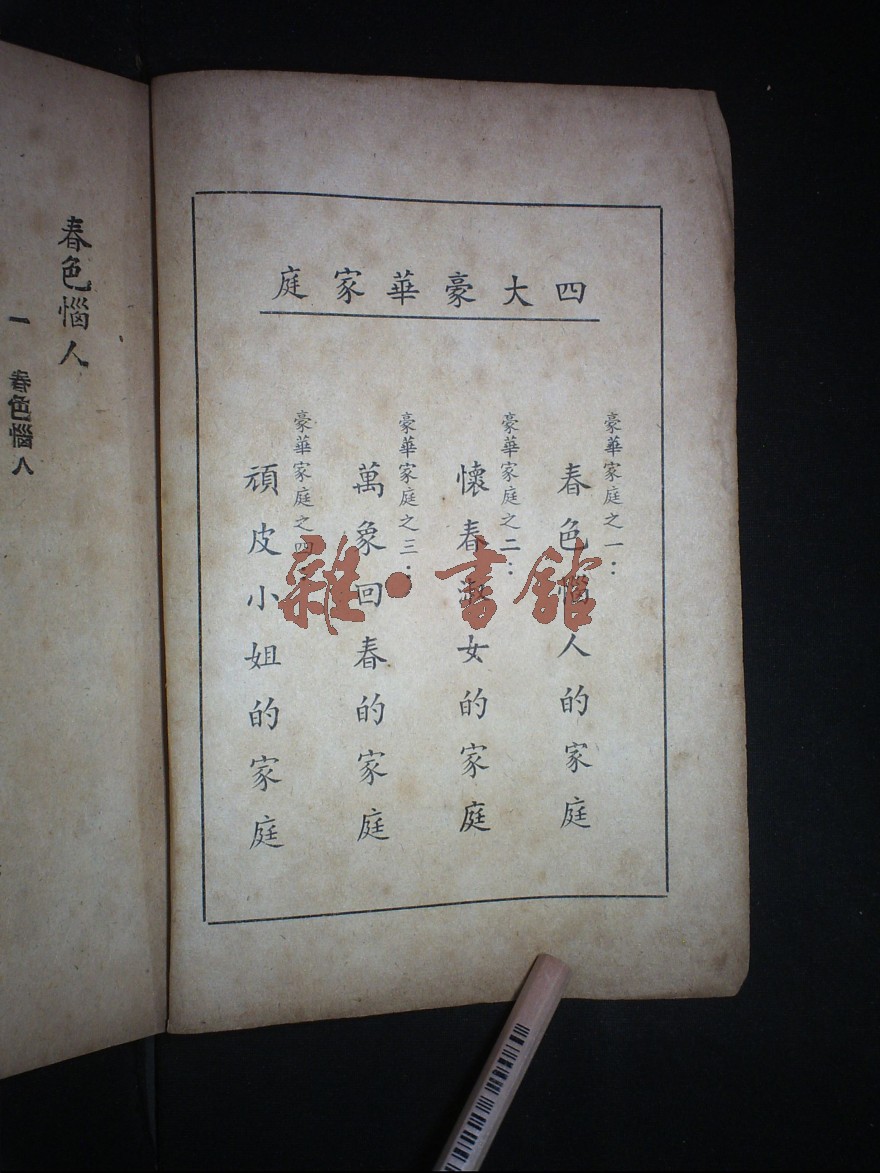 四大豪華家庭
豪華家庭之一：
春色惱人的家庭
豪華家庭之二：
懷春淑女的家庭
豪華家庭之三：
萬象回春的家庭
豪華家庭之四：
頑皮小姐的家庭
春色惱人
一　春色惱人
雜·書館